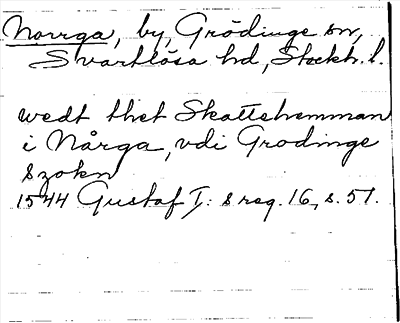 Norrga, by, Grödinge sn,
Svartlösa hd, Stockh. l.
wedt thet Skattehemman
i Nårga, vdi Grodinge
szokn
1544 Gustaf I: s reg. 16, s. 51.